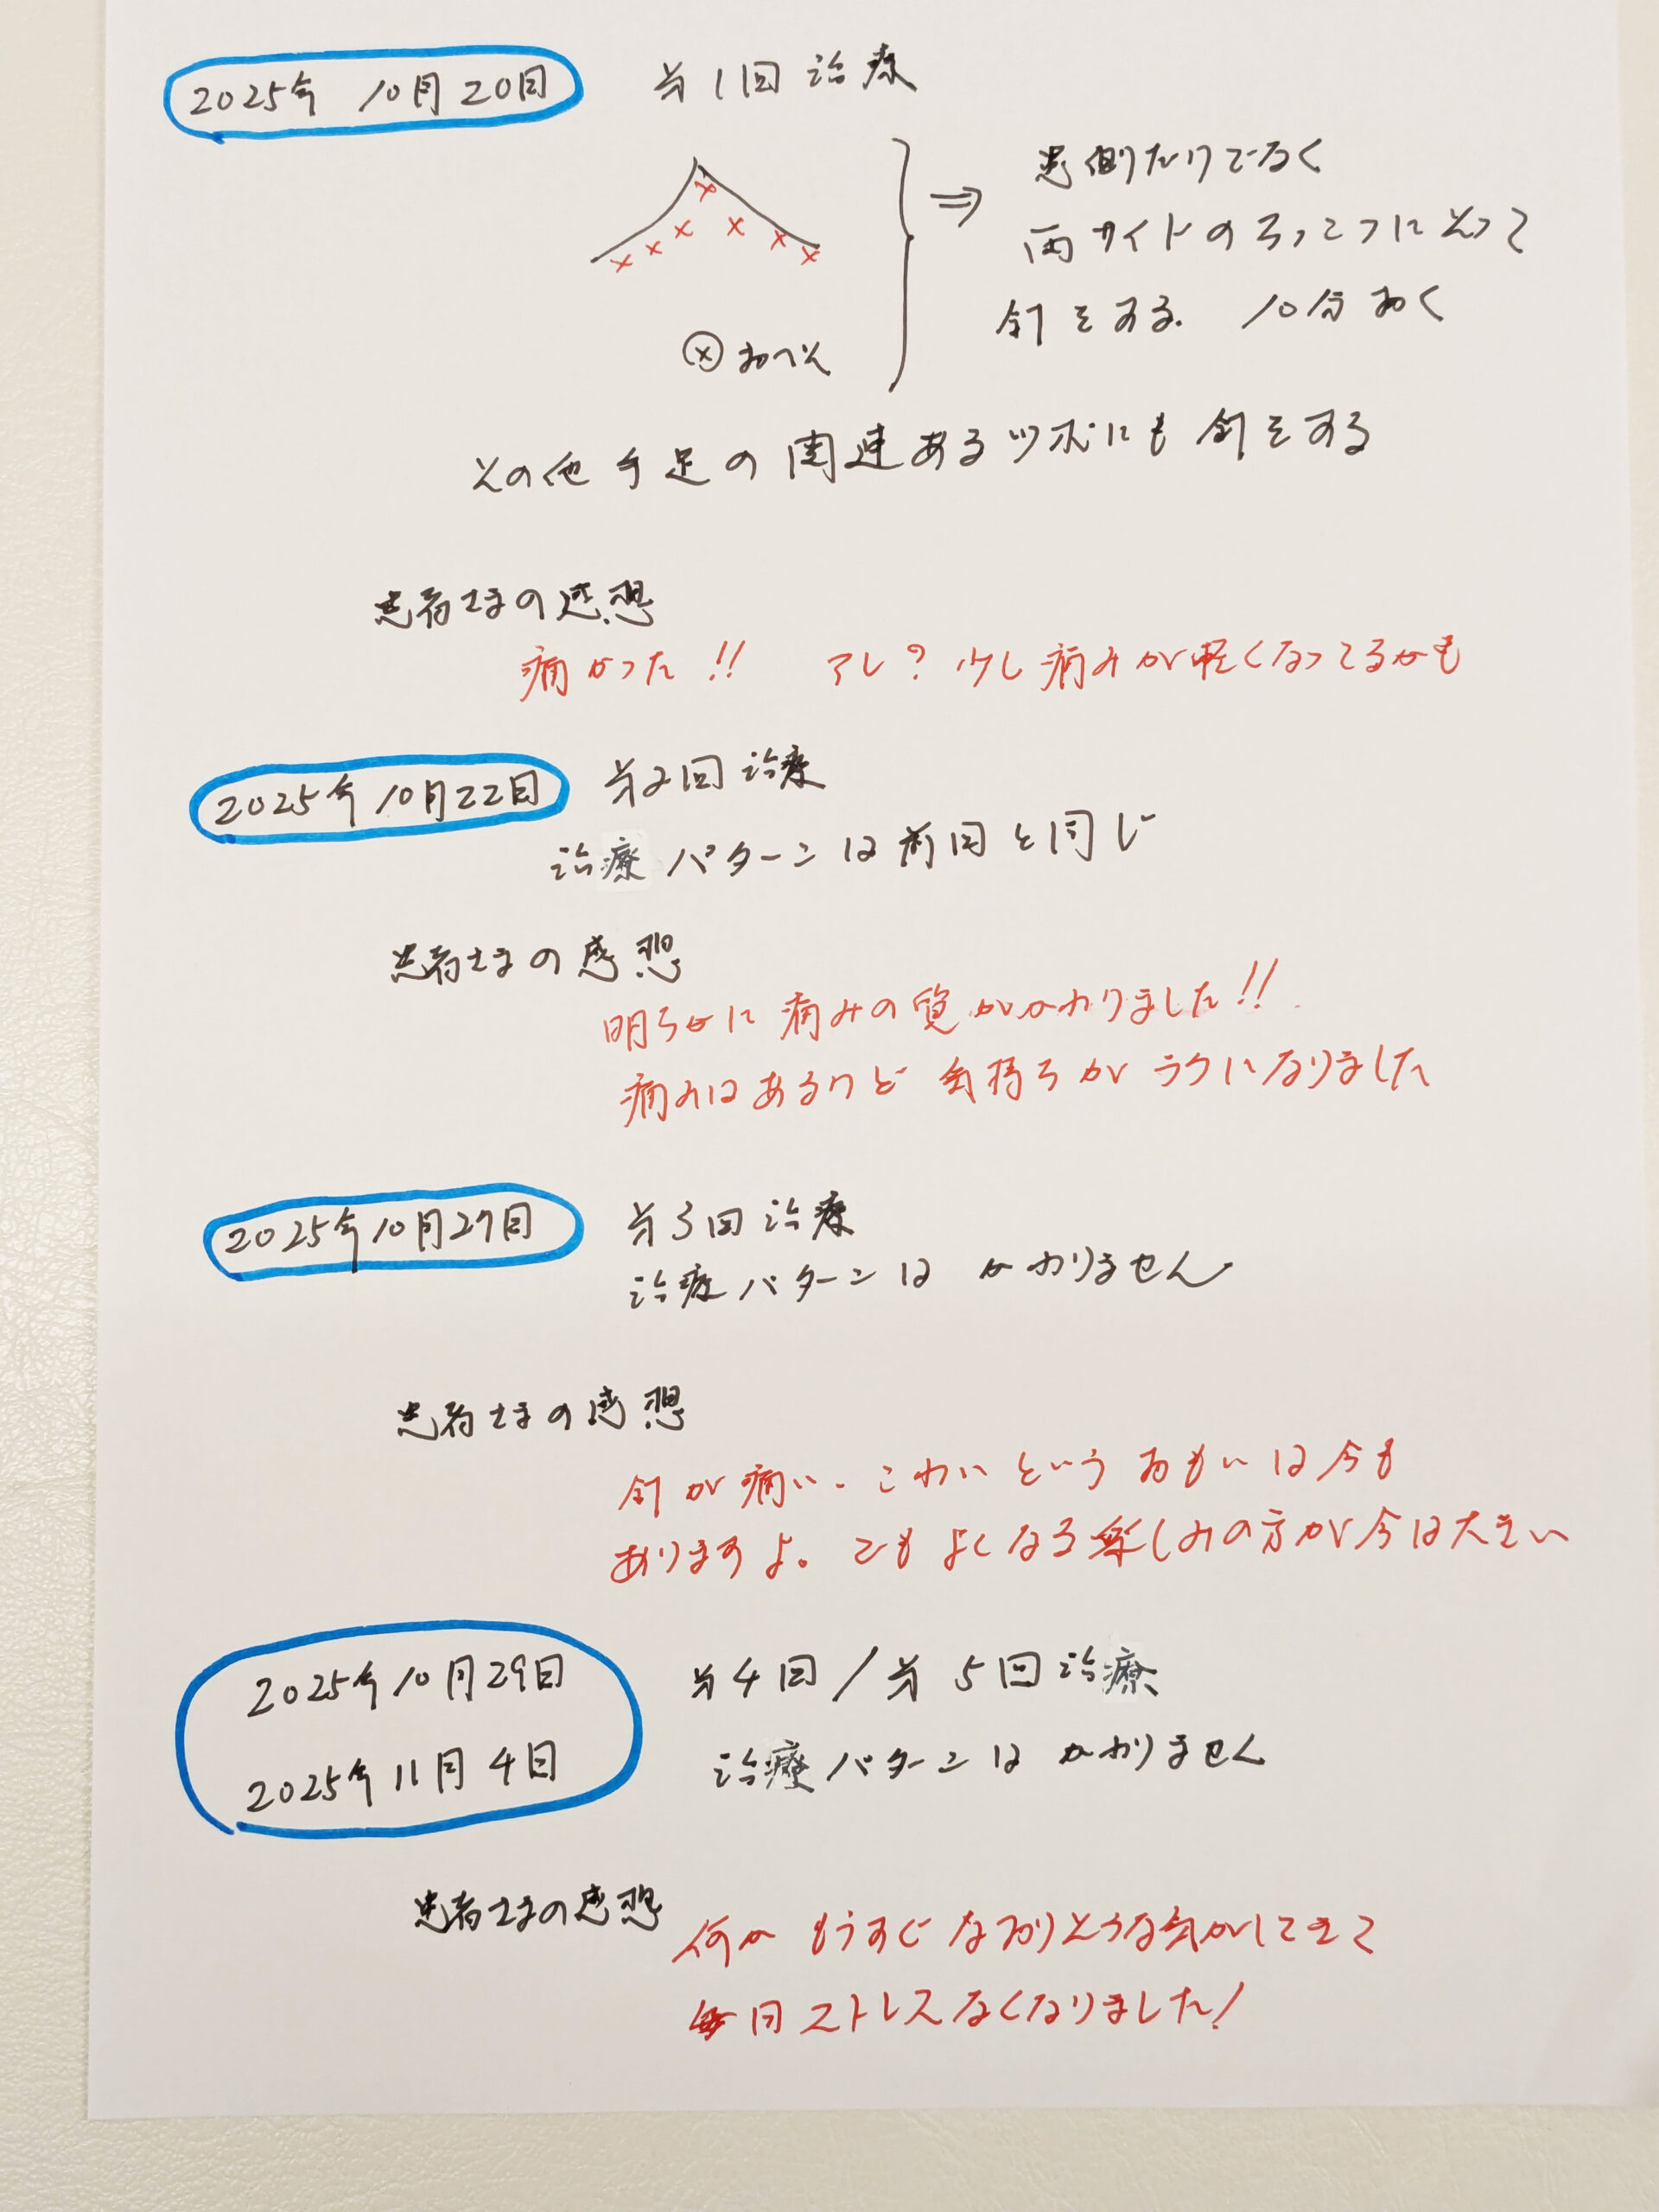 2025年 10月20日 第1回 治療
患側だけでなく
両サイドのろっこつにそって
針をする. 10分おく
おへそ
その他 手足の関連あるツボにも 針をする
患者さまの感想
痛かった!! アレ? 少し痛みが軽くなってるかも
2025年 10月22日 第2回 治療
治療パターンは前回と同じ
患者さまの感想
明らかに痛みの質がかわりました!!
痛みはあるけど 気持ちが ラクになりました
2025年10月27日 第3回 治療
治療パターンは かわりません
患者さまの感想
針が痛い. こわい という おもいは今も
ありますよ。でも よくなる楽しみの方が今は大きい
2025年10月29日 第4回/第5回治療
2025年11月4日 治療パターンは かわりません
患者さまの感想 何か もうすぐ なおりそうな気がしてきて
毎日ストレスなくなりました!